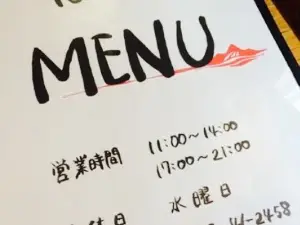 MENU
営業時間 11:00～14:00
17:00～21:00
水曜日
-2458